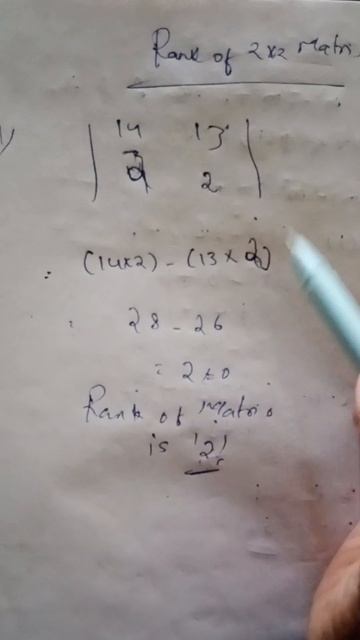 Rank of 2x2 Matri
1)
14 13
2 2
(14x2) - (13 x 2)
28 - 26
= 2 ≠ 0
Rank of Matrix
is '2'